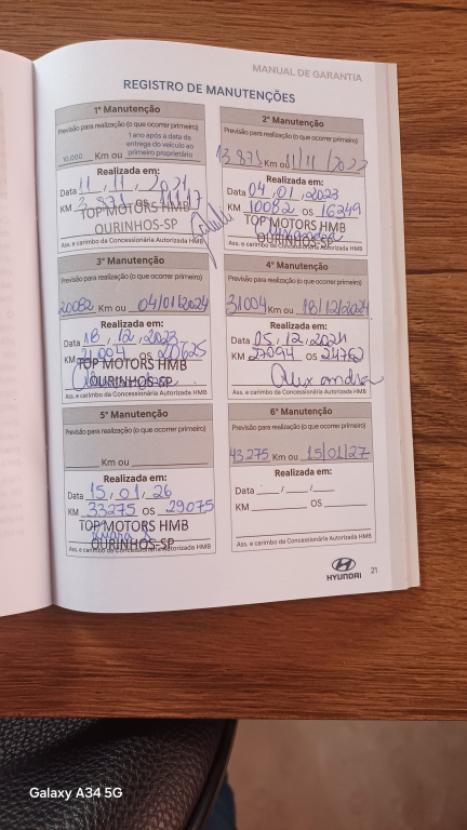 MANUAL DE GARANTIA
REGISTRO DE MANUTENÇÕES
1ª Manutenção
Previsão para realização (o que ocorrer primeiro)
10.000 Km ou 1 ano após a data da entrega do veículo ao primeiro proprietário
Realizada em:
Data 11, 11, 2021
KM 3.871 OS
TOP MOTORS HMB
OURINHOS-SP
Ass. e carimbo da Concessionária Autorizada HMB
2ª Manutenção
Previsão para realização (o que ocorrer primeiro)
13.871 Km ou 11/11/2022
Realizada em:
Data 04, 01, 2023
KM 10082 OS 16349
TOP MOTORS HMB
OURINHOS-SP
Ass. e carimbo da Concessionária Autorizada HMB
3ª Manutenção
Previsão para realização (o que ocorrer primeiro)
20082 Km ou 04/01/2024
Realizada em:
Data 18, 12, 2023
KM 21.004 OS 20625
TOP MOTORS HMB
OURINHOS-SP
Ass. e carimbo da Concessionária Autorizada HMB
4ª Manutenção
Previsão para realização (o que ocorrer primeiro)
31004 Km ou 18/12/2024
Realizada em:
Data 05, 12, 2024
KM 27094 OS 24762
Alexandra
Ass. e carimbo da Concessionária Autorizada HMB
5ª Manutenção
Previsão para realização (o que ocorrer primeiro)
Km ou
Realizada em:
Data 15, 01, 26
KM 33275 OS 29075
TOP MOTORS HMB
OURINHOS-SP
Ass. e carimbo da Concessionária Autorizada HMB
6ª Manutenção
Previsão para realização (o que ocorrer primeiro)
43.275 Km ou 15/01/27
Realizada em:
Data __/__/__
KM ____ OS ____
Ass. e carimbo da Concessionária Autorizada HMB
HYUNDAI 21
Galaxy A34 5G